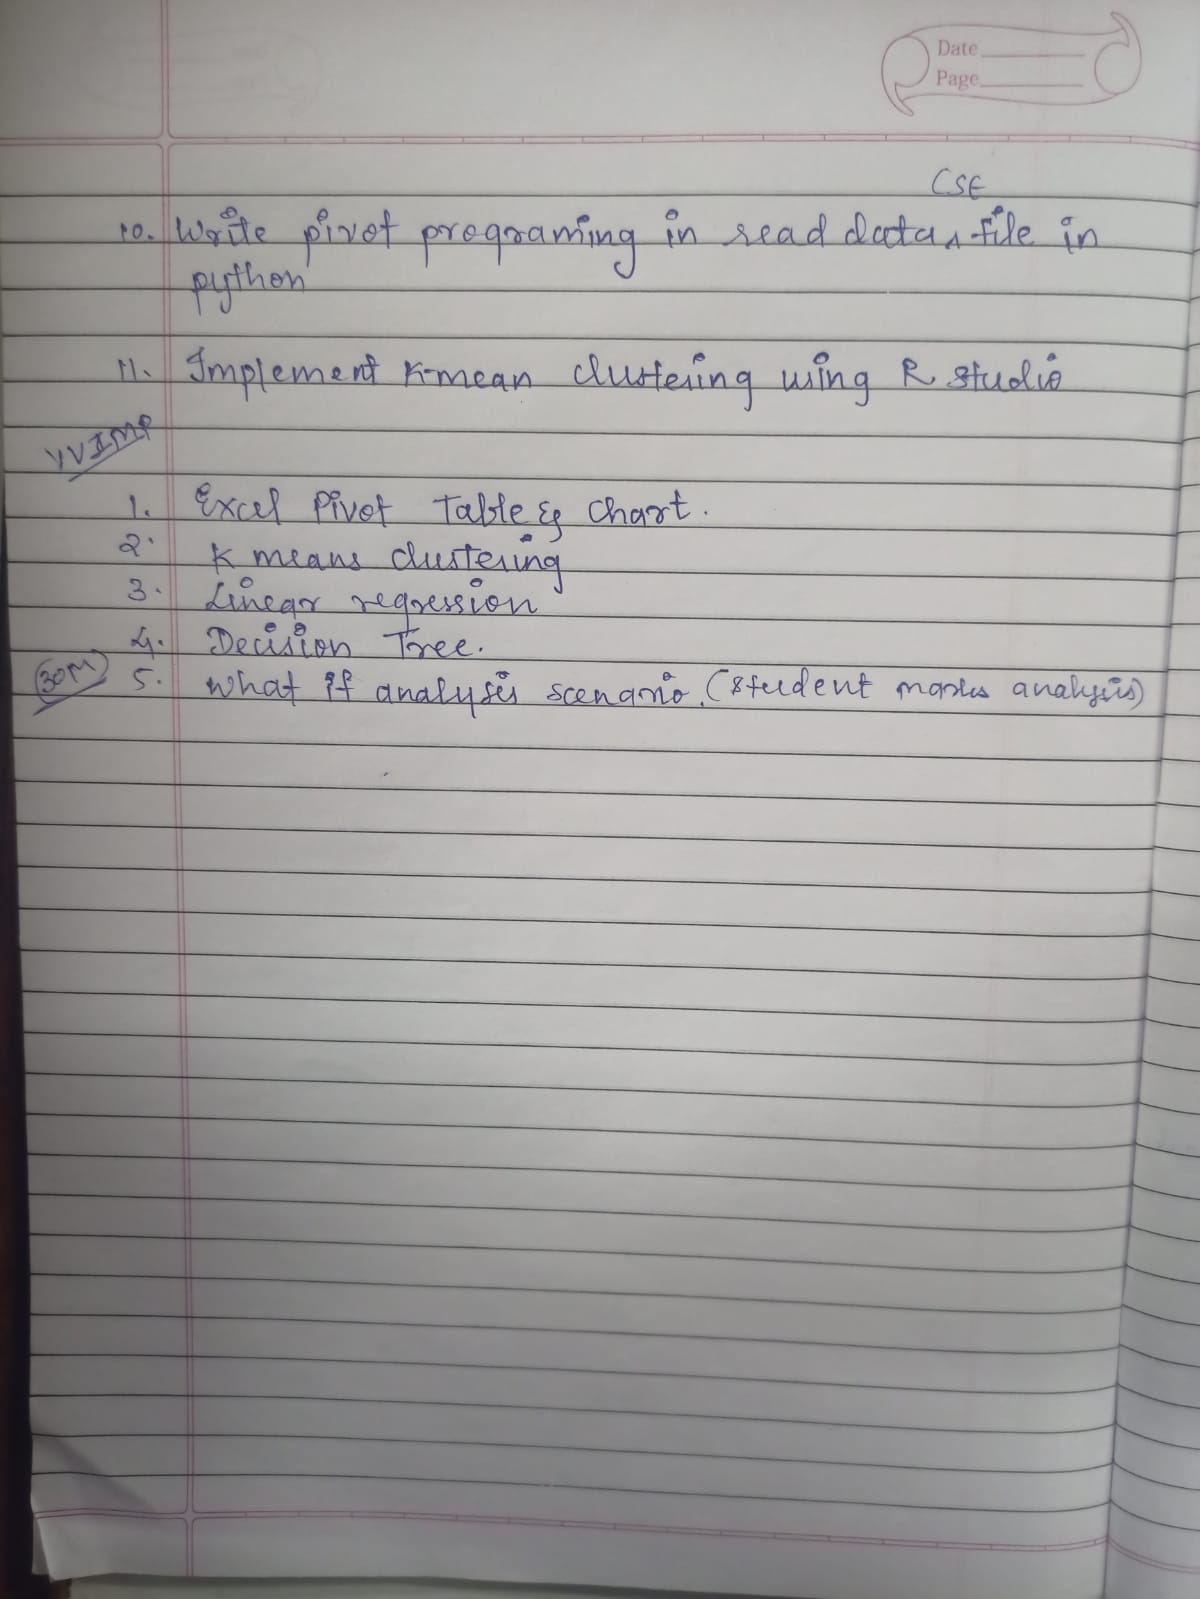 Date
Page
CSE
10. Write pivot programing in read data ^ file in
python
11. Implement K-mean clustering using R studio
VVIMP
1. Excel Pivot Table & Chart.
2. K means clustering
3. Linear regression
4. Decision Tree.
30M 5. What if analysis scenario. (Student marks analysis)